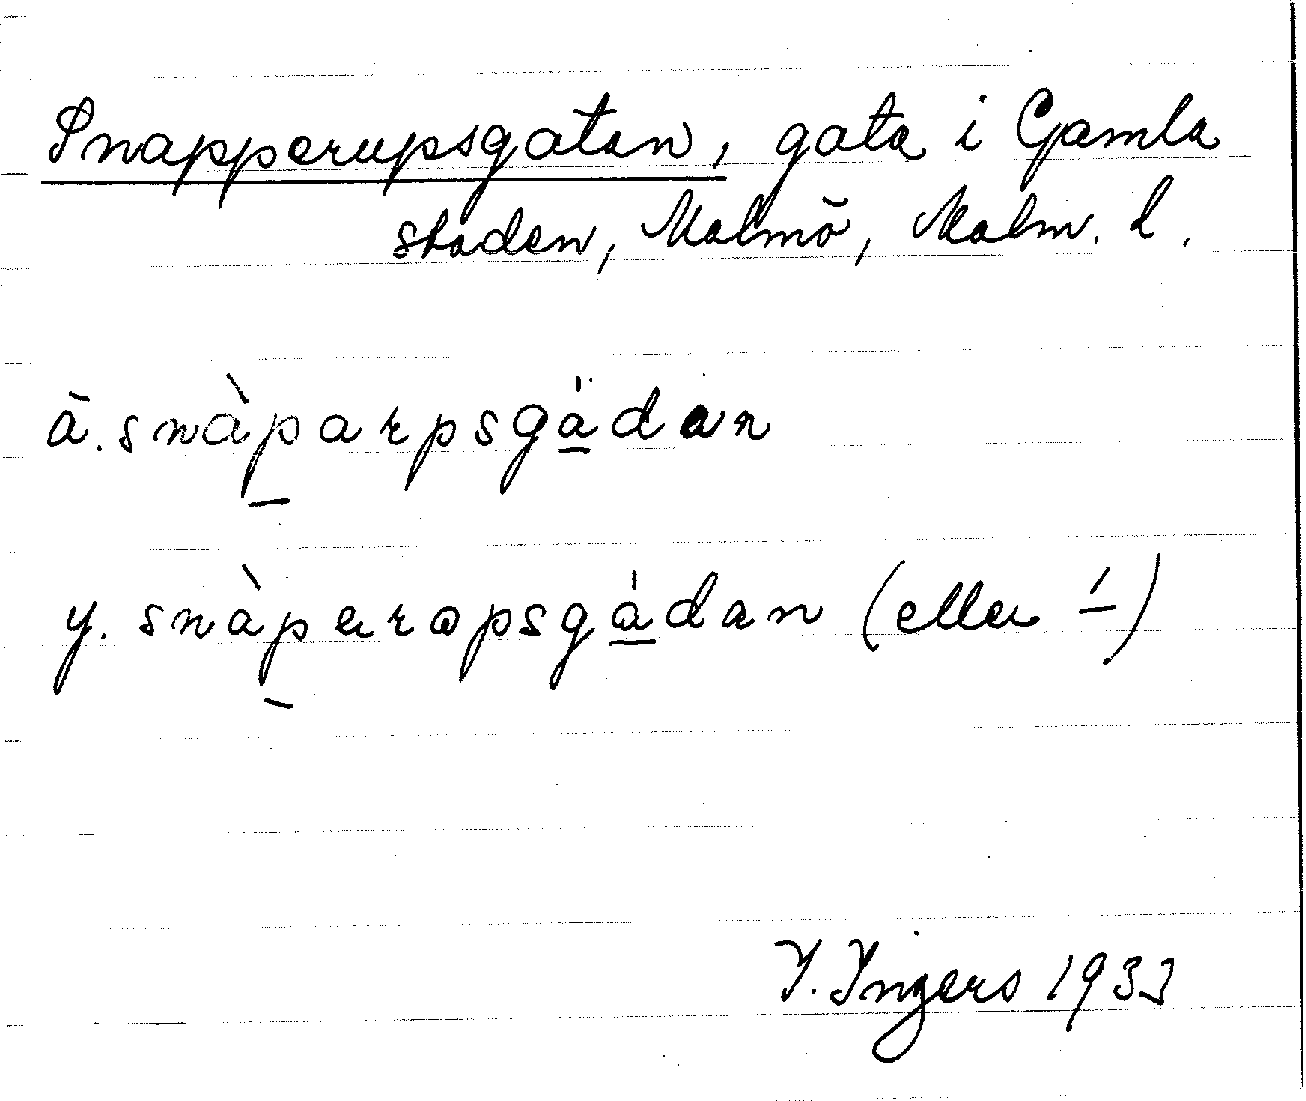 Snapperupsgatan, gata i Gamla
staden, Malmö, Malm. l.
ä. snàparpsgádan
y. snàperopsgádan (eller ́–)
I. Ingers 1933